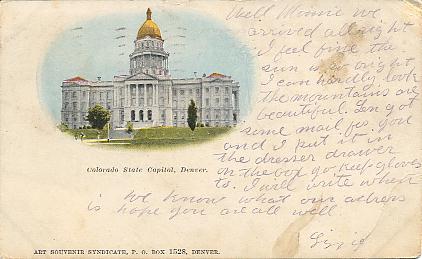 Well Minnie we
arrived allright
I feel fine the
sun is so bright
I can hardly look
the mountains are
beautiful. Len got
some mail fes you
and I put it in
the dresser drawer
on the box go keep gloves
to. I will write when
we know what our adress
is hope you are all well
Lizzie
Colorado State Capitol, Denver.
ART SOUVENIR SYNDICATE, P. O. BOX 1528, DENVER.